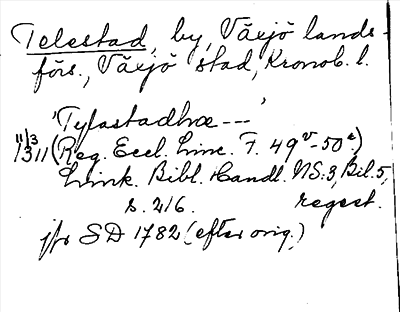 Telestad, by, Växjö lands-
förs., Växjö stad, Kronob. l.
'Tyfastadhæ ---'
11/3 1311 (Reg. Eccl. Linc. F. 49v-50r)
Link. Bibl. Handl. NS:3, Bil. 5,
s. 216. regest.
jfr SD 1782 (efter orig.)